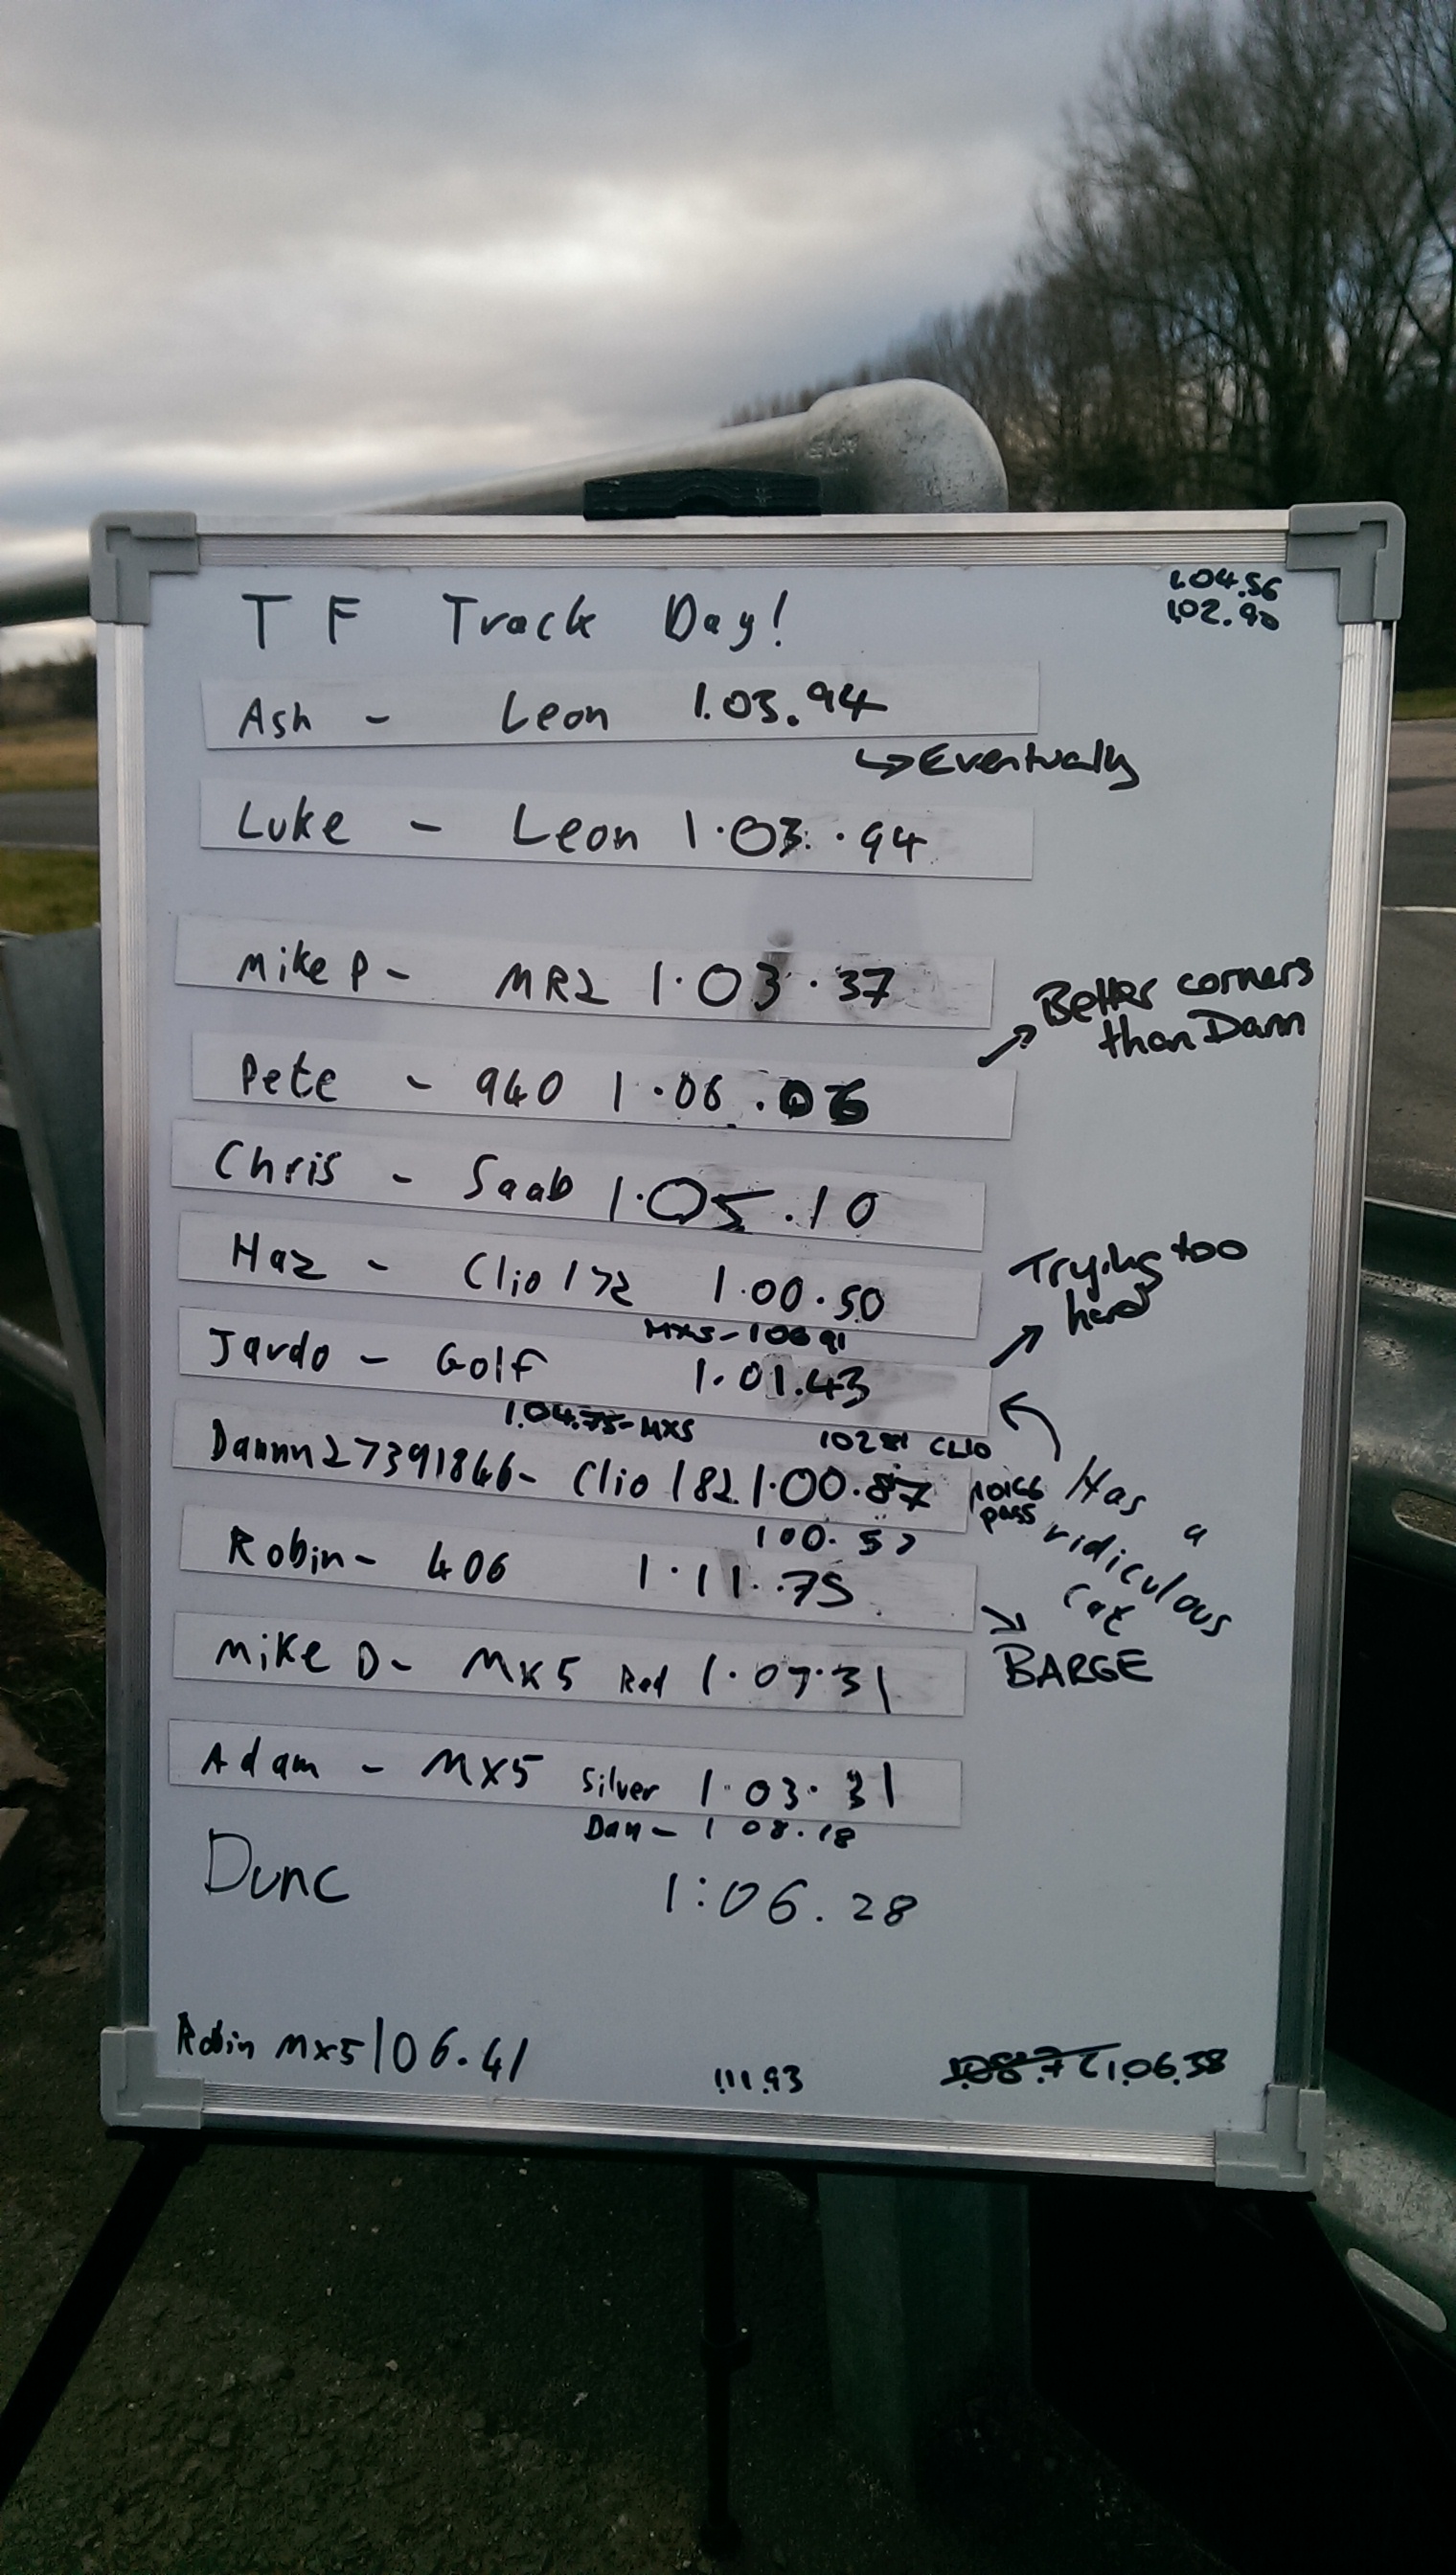 1.04.56
1.02.90
TF Track Day!
Ash - Leon 1.03.94
↳ Eventually
Luke - Leon 1.03.94
Mike P - MR2 1.03.37
Better corners
than Dann
Pete - 940 1.06.06
Chris - Saab 1.05.10
Haz - Clio 172 1.00.50
Trying too
hard
MX5 - 1 06 91
Jardo - Golf 1.01.43
1.04.75 - MX5
CLIO
Dannn27391846 - Clio 182 1.00.87
pass
Has a
ridiculous
cat
Robin - 406 1.11.75
BARGE
Mike D - MX5 Red 1.07.31
Adam - MX5 Silver 1.03.31
Dan - 1 08.18
Dunc 1:06.28
Robin MX5 1 06.41
1.11.93
1.06.38